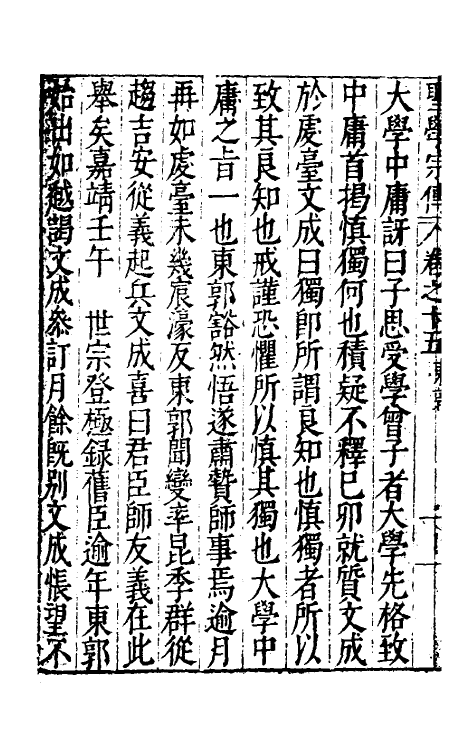 聖學宗傳 卷之十五 東郭
大學中庸訝曰子思受學曾子者大學先格致
中庸首掲慎獨何也積疑不釋已卯就質文成
於虔臺文成曰獨卽所謂良知也慎獨者所以
致其良知也戒謹恐懼所以慎其獨也大學中
庸之旨一也東郭豁然悟遂肅贄師事焉逾月
再如虔臺未幾宸濠反東郭聞變率昆季群從
趨吉安從義起兵文成喜曰君臣師友義在此
舉矣嘉靖壬午 世宗登極録舊臣逾年東郭
始出如越謁文成叅訂月餘既别文成悵望不